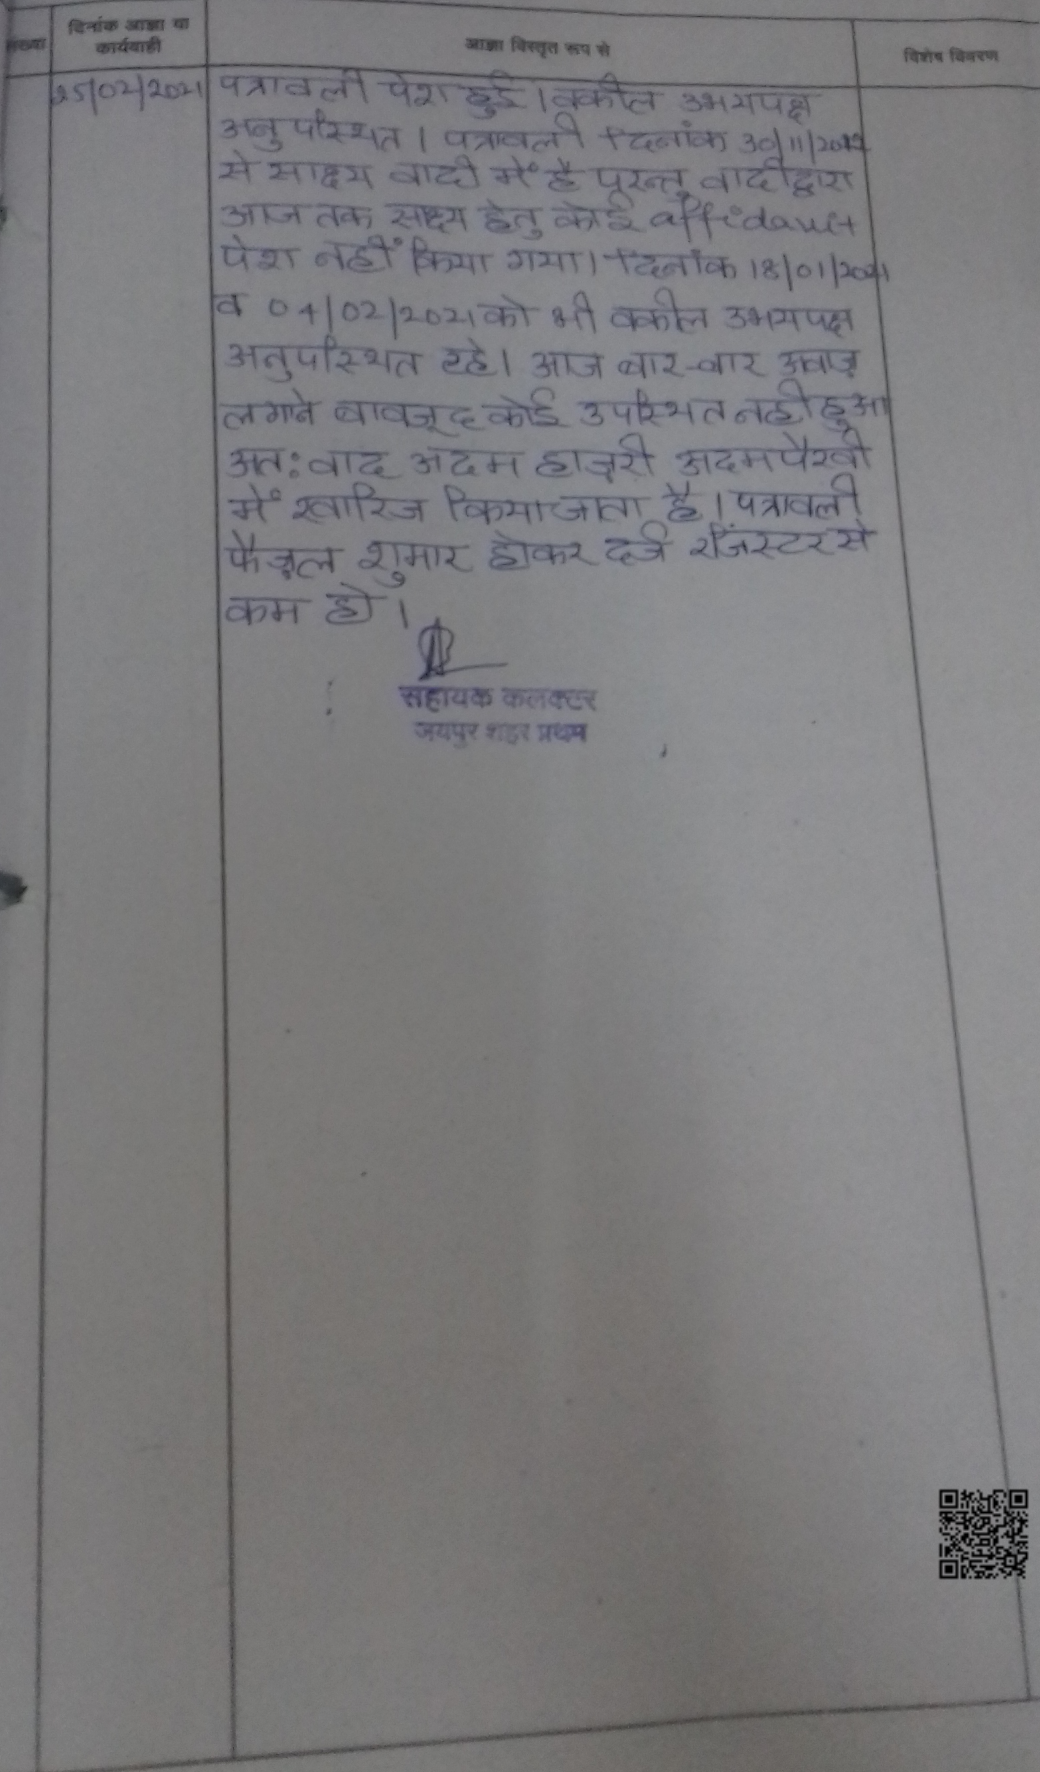 संख्या
दिनांक आज्ञा या
कार्यवाही
आज्ञा विस्तृत रूप से
विशेष विवरण
25/02/2021
पत्रावली पेश हुई। वकील उभयपक्ष
अनुपस्थित। पत्रावली दिनांक 30/11/
से साक्ष्य वादी में है परन्तु वादी द्वारा
आज तक साक्ष्य हेतु कोई affidavit
पेश नहीं किया गया। दिनांक 18/01/2021
व 04/02/2021 को भी वकील उभयपक्ष
अनुपस्थित रहे। आज बार-बार आवाज़
लगाने बावजूद कोई उपस्थित नहीं हुआ
अतः वाद अदम हाज़री अदम पैरवी
में खारिज किया जाता है। पत्रावली
फैज़ल शुमार होकर दर्ज रजिस्टर से
कम हो।
सहायक कलक्टर
जयपुर शहर प्रथम